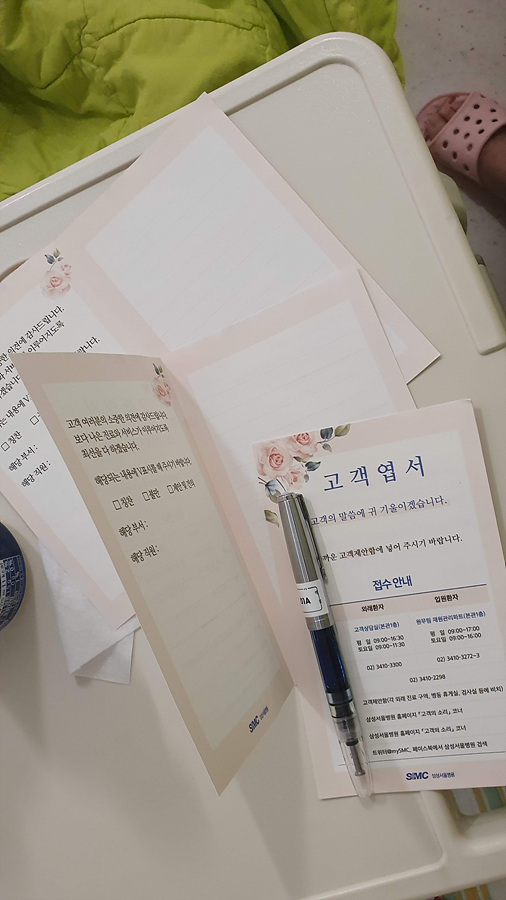 한 의견에 감사드립니다.
이루어지도록
는 내용에 V
□ 칭찬
해당 부서 :
해당 직원 :
고객 여러분의 소중한 의견에 감사드립니다
보다 나은 진료와 서비스가 이루어지도록
최선을 다 하겠습니다.
해당되는 내용에 V표시를 해 주시기 바랍니다.
□ 칭찬 □ 불만 □ 제안 및 건의
해당 부서 :
해당 직원 :
SMC 삼성서울병원
고객엽서
고객의 말씀에 귀 기울이겠습니다.
까운 고객제안함에 넣어 주시기 바랍니다.
접수안내
외래환자 입원환자
고객상담실(본관1층) 원무팀 재원관리파트(본관1층)
평 일 09:00~16:30 평 일 09:00~17:00
토요일 09:00~11:30 토요일 09:00~16:00
02) 3410-3300 02) 3410-3272~3
02) 3410-2298
고객제안함(각 외래 진료 구역, 병동 휴게실, 검사실 등에 비치)
삼성서울병원 홈페이지 「고객의 소리」 코너
삼성서울병원 홈페이지 「고객의 소리」 코너
트위터@mySMC, 페이스북에서 삼성서울병원 검색
SMC 삼성서울병원